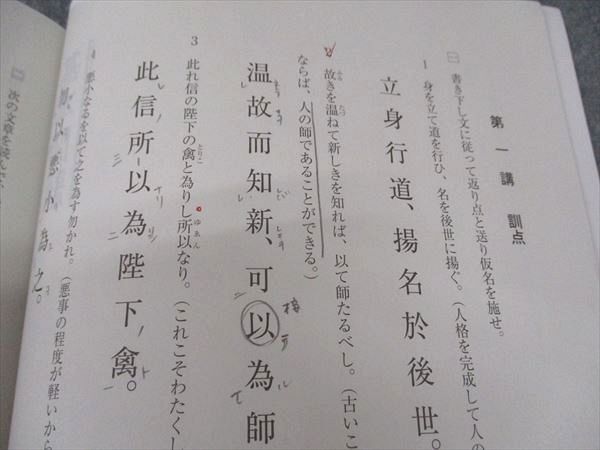 第一講 訓点
一 書き下し文に従って返り点と送り仮名を施せ。
1 身を立て道を行ひ、名を後世に揚ぐ。(人格を完成して人の
立身行道、揚名於後世。
2 故きを温ねて新しきを知れば、以て師たるべし。(古いこ
ふる たづ
ならば、人の師であることができる。)
温故而知新、可以為師
3 此れ信の陛下の禽と為りし所以なり。(これこそわたくし
とりこ ゆゑん
此信所以為陛下禽。
4 悪小なるを以て之を為す勿かれ。(悪事の程度が軽いから
勿以悪小為之。
次の文章を読んで、